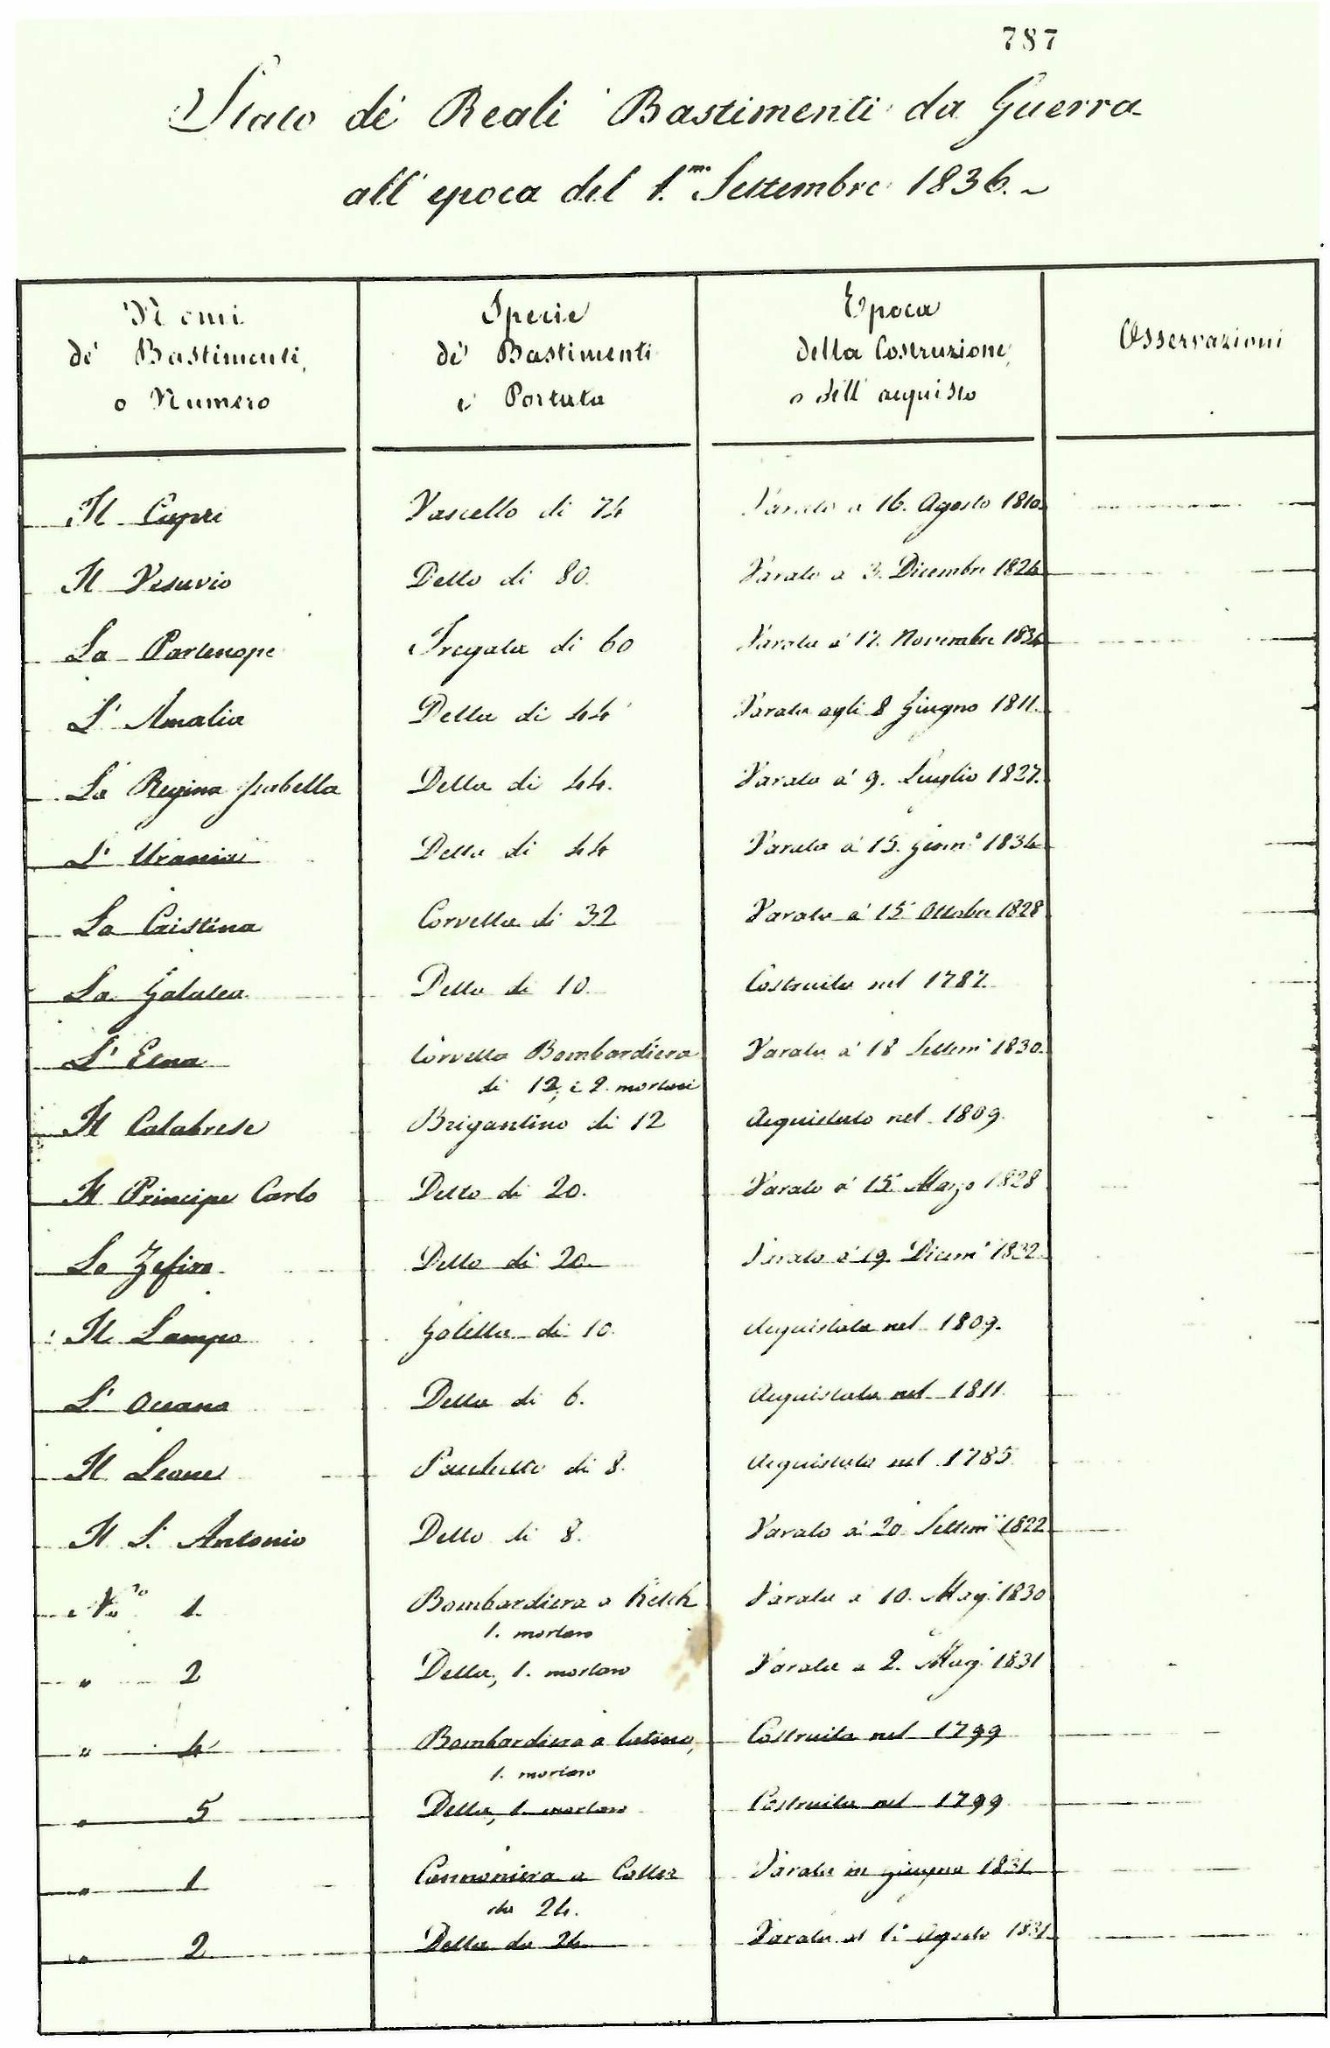 787
Stato dè Reali Bastimenti da Guerra
all'epoca del 1.mo Settembre 1836.
Nomi
dè Bastimenti,
o Numero
Specie
dè Bastimenti
e Portata
Epoca
della Costruzione,
o dell'acquisto
Osservazioni
Il Capri Vascello di 74 Varato a 16. Agosto 1810.
Il Vesuvio Detto di 80. Varato a 3. Dicembre 1824
La Partenope Fregata di 60 Varata a' 17. Novembre 1834
L'Amalia Detta di 44 Varata agli 8 Giugno 1811.
La Regina Isabella Detta di 44. Varata a' 9. Luglio 1827.
L'Urania Detta di 44 Varata a' 15. Giun.o 1834
La Cristina Corvetta di 32 Varata a' 15 Ottobre 1828
La Galatea Detta di 10. Costruita nel 1787.
L'Etna Corvetta Bombardiera Varata a' 18 Settem. 1830.
di 12, e 2. mortari
Il Calabrese Brigantino di 12 Acquistato nel 1809.
Il Principe Carlo Detto di 20. Varato a' 15 Marzo 1828
Lo Zefiro Detto di 20. Varato a' 19. Dicem. 1832.
Il Lampo Goletta di 10. Acquistata nel 1809.
L'Oceano Detta di 6. Acquistata nel 1811.
Il Leone Pacchetto di 8. Acquistato nel 1785
Il S. Antonio Detto di 8. Varato a' 20 Settem. 1822
N.o 1. Bombardiera a Ketch Varata a 10. Mag. 1830
1. mortaro
" 2 Detta, 1. mortaro Varata a 2. Mag. 1831
" 4 Bombardiera a latino, Costruita nel 1799
1. mortaro
" 5 Detta, 1. mortaro Costruita nel 1799
" 1 Cannoniera a Cotter Varata in Giugno 1831
da 24.
" 2 Detta da 24 Varata al 1.o Agosto 1831